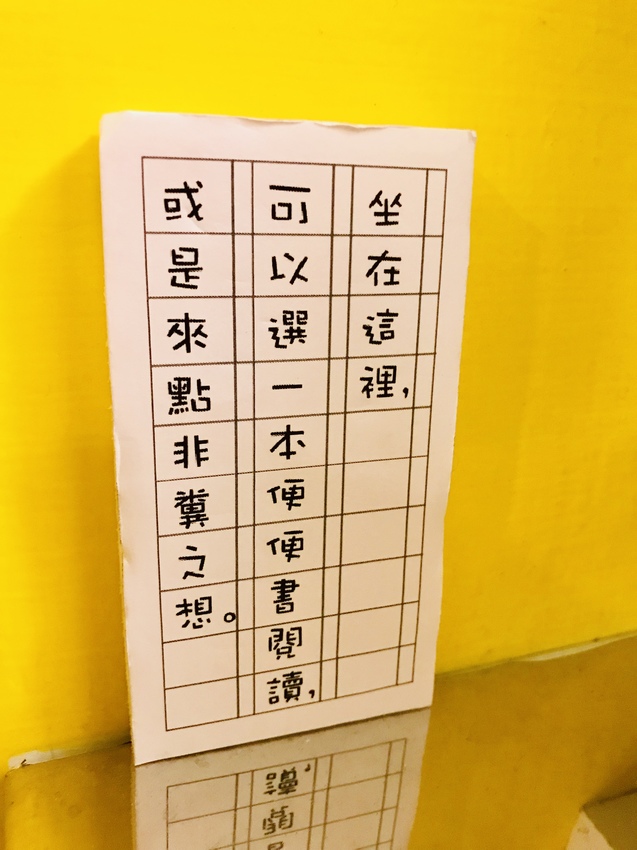 坐在這裡,
可以選一本便便書閱讀,
或是來點非糞之想。